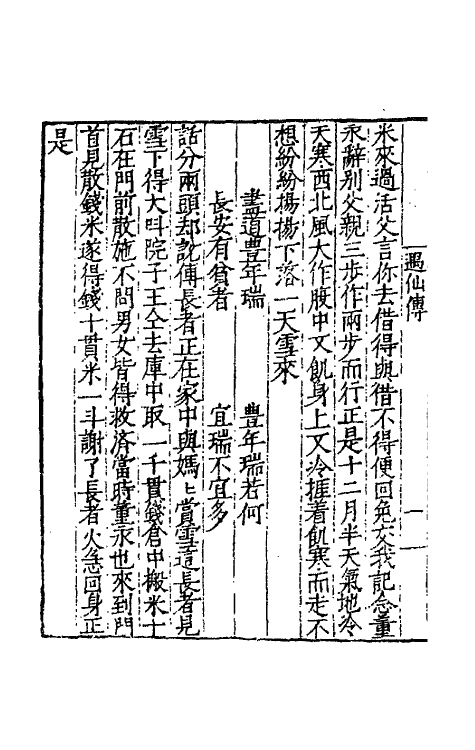 遇仙傳
一
米來過活父言你去借得與借不得便回免交我記念董
永辭别父親三步作兩步而行正是十二月半天氣地冷
天寒西北風大作股中又飢身上又冷捱着飢寒而走不
想紛紛揚揚下落一天雪來
盡道豊年瑞　豊年瑞若何
長安有貧者　宜瑞不宜多
話分兩頭却說傳長者正在家中與媽〻賞雪這長者見
雪下得大呌院子王仝去庫中取一千貫錢倉中搬米十
石在門前散施不問男女皆得救济當時董永也來到門
首見散錢米遂得錢十貫米一斗謝了長者火急回身正
是